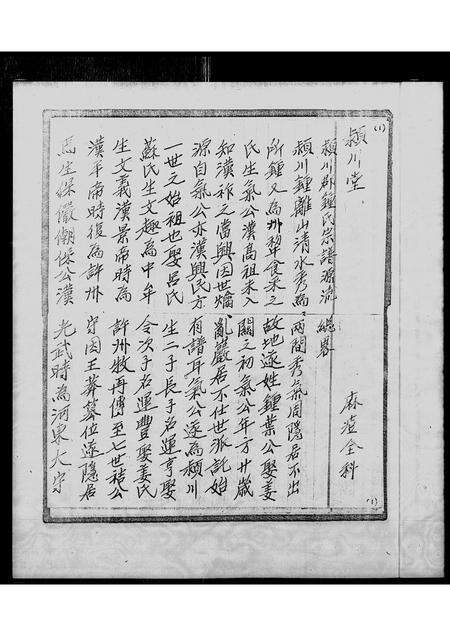 (1)
潁川堂
潁川郡鍾氏宗譜源流 總畧
麻澄全科
潁川鍾離山清水秀為兩間秀氣周隱居不出
所鍾又為州犂食采之故地遂姓鍾葉公娶姜
氏生氣公漢高祖未入關之初氣公年方廿歲
知漢祚之當興因世爚亂巖居不仕世派託始
源自氣公亦漢興民方有譜耳氣公遂為潁川
一世之始祖也娶呂氏生二子長子名運亨娶
蘇氏生文趣為中牟令次子名運豐娶姜氏
生文義漢景帝時為許州牧再傳至七世禧公
漢平南時後為許州守因王莽篡位遂隱居
馬生 傑公漢光武時為河東大守